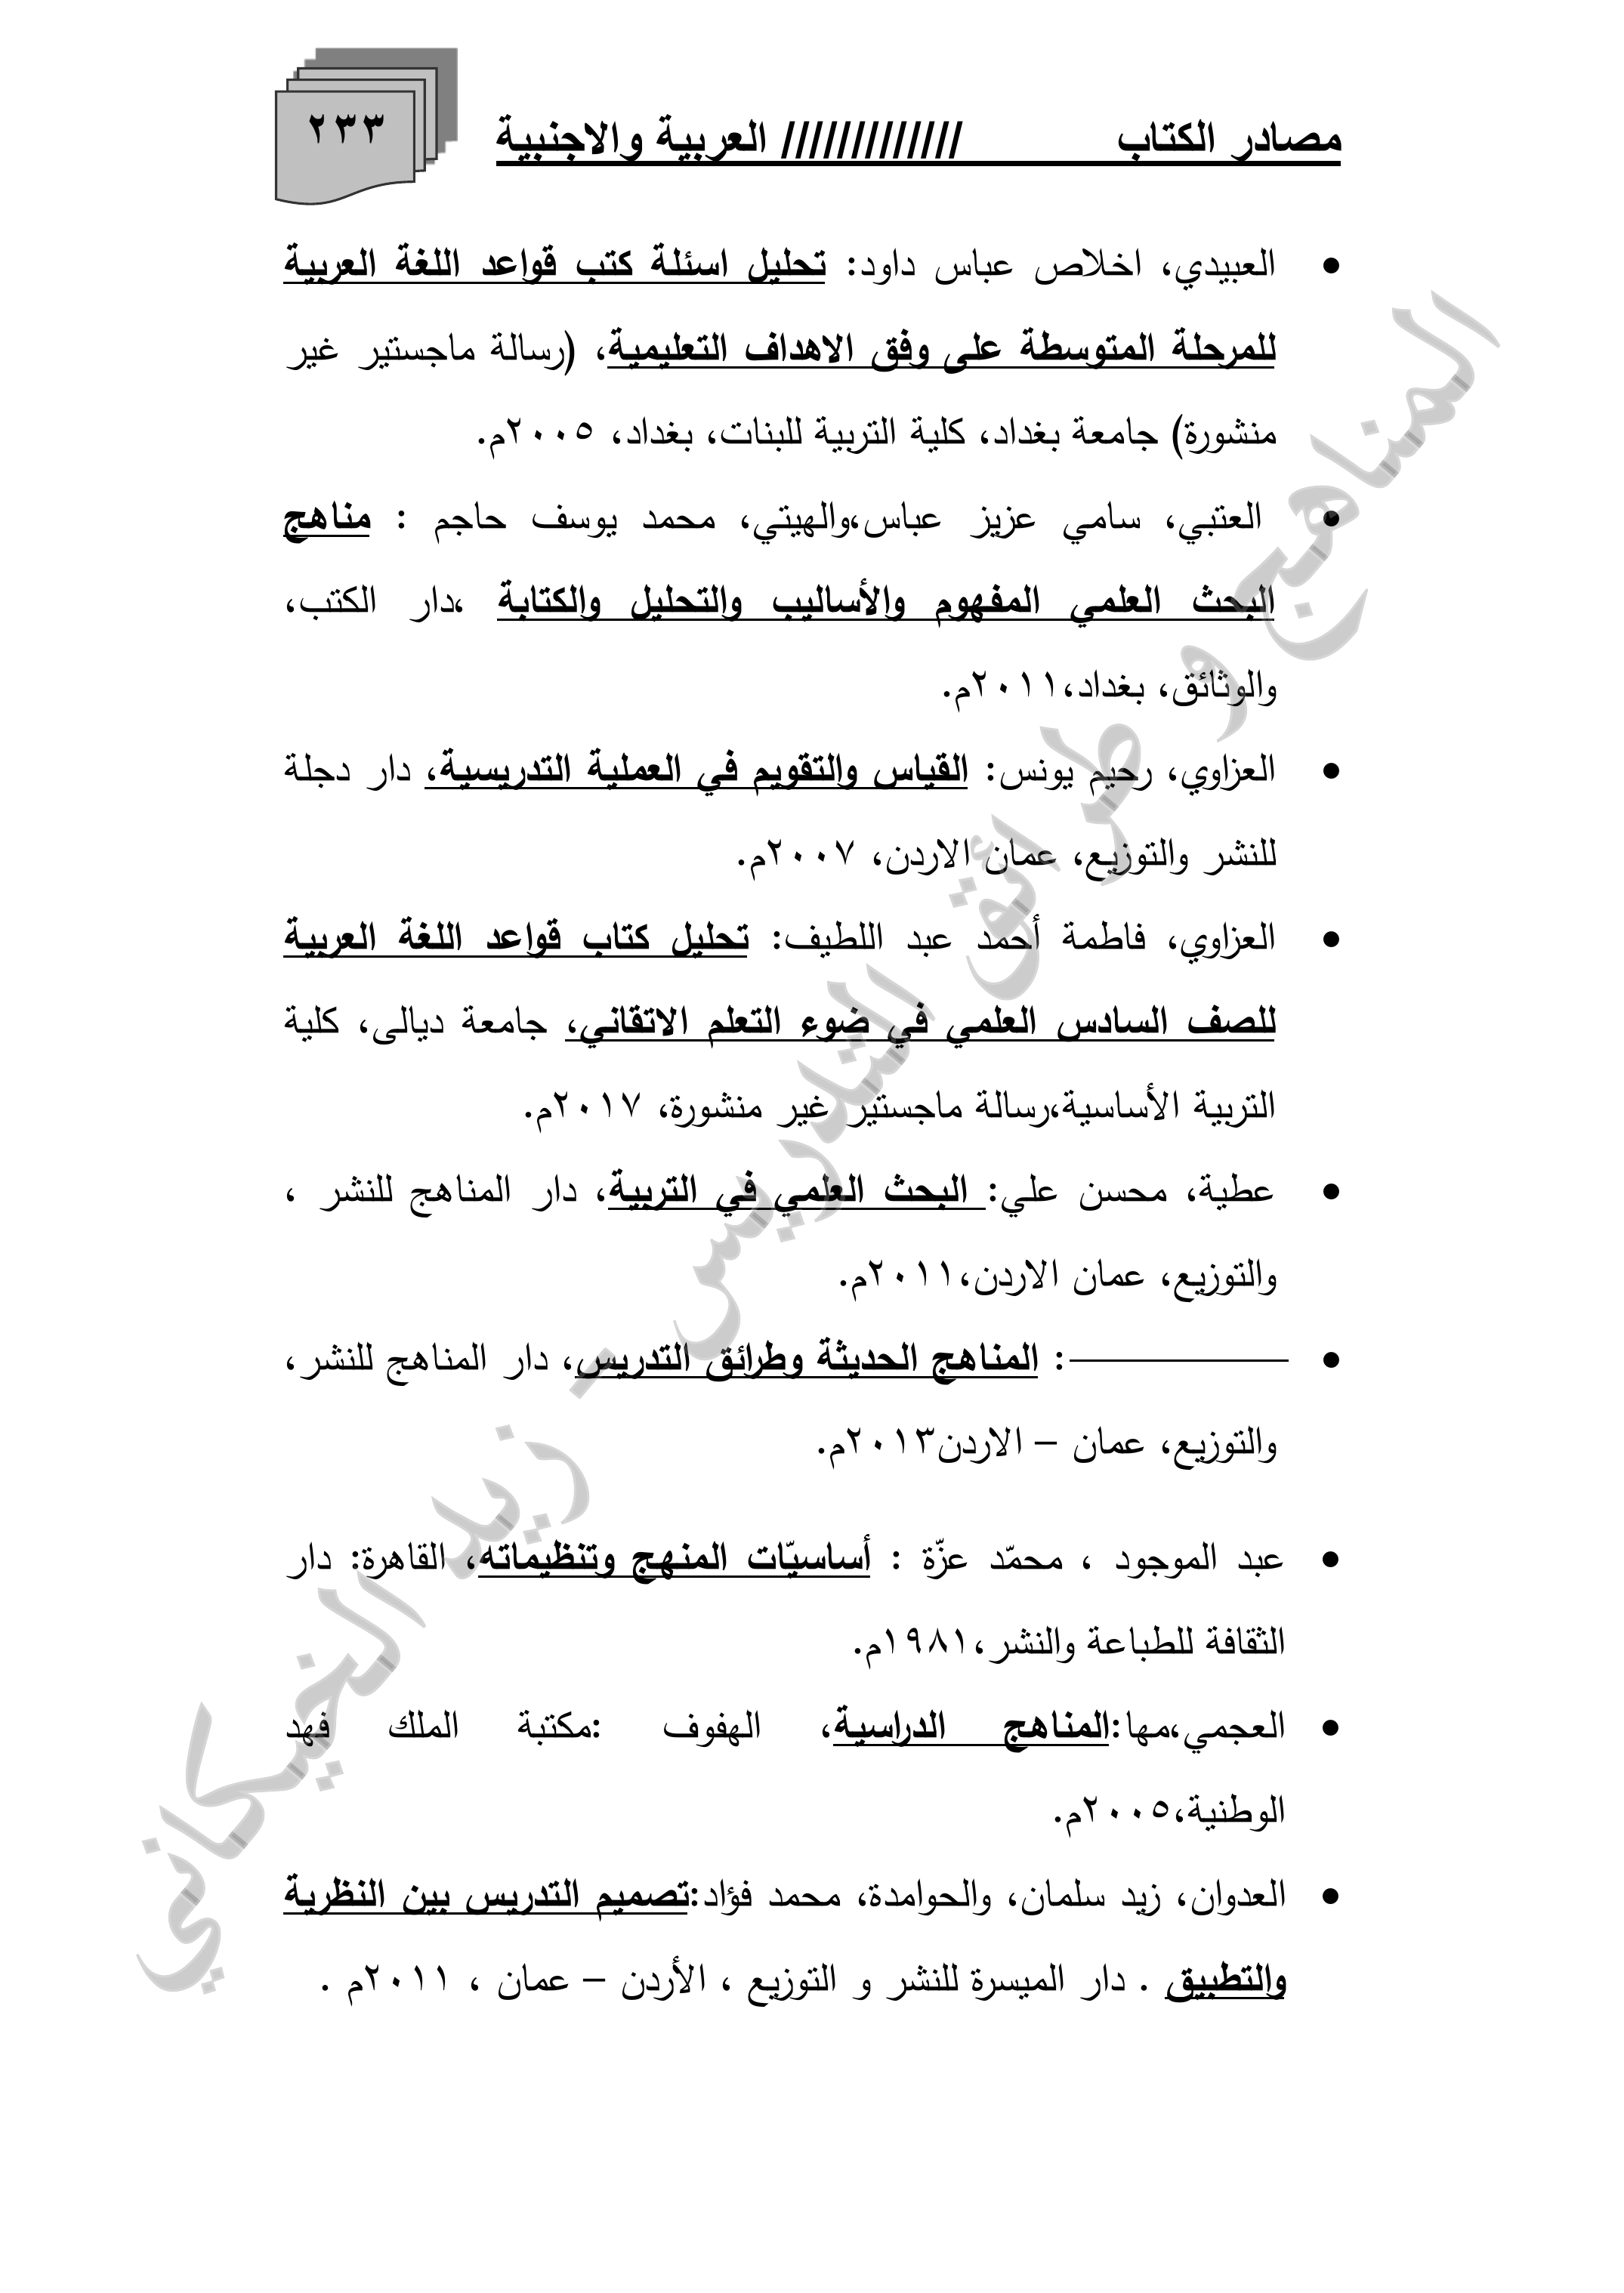 مصادر الكتاب ///////////// العربية والاجنبية
٢٣٣
• العبيدي، اخلاص عباس داود: تحليل اسئلة كتب قواعد اللغة العربية
للمرحلة المتوسطة على وفق الاهداف التعليمية، (رسالة ماجستير غير
منشورة) جامعة بغداد، كلية التربية للبنات، بغداد، ٢٠٠٥م.
• العتبي، سامي عزيز عباس،والهيتي، محمد يوسف حاجم : مناهج
البحث العلمي المفهوم والأساليب والتحليل والكتابة ،دار الكتب،
والوثائق، بغداد،٢٠١١م.
• العزاوي، رحيم يونس: القياس والتقويم في العملية التدريسية، دار دجلة
للنشر والتوزيع، عمان الاردن، ٢٠٠٧م.
• العزاوي، فاطمة أحمد عبد اللطيف: تحليل كتاب قواعد اللغة العربية
للصف السادس العلمي في ضوء التعلم الاتقاني، جامعة ديالى، كلية
التربية الأساسية،رسالة ماجستير غير منشورة، ٢٠١٧م.
• عطية، محسن علي: البحث العلمي في التربية، دار المناهج للنشر ،
والتوزيع، عمان الاردن،٢٠١١م.
• ــــــــــــــــ: المناهج الحديثة وطرائق التدريس، دار المناهج للنشر،
والتوزيع، عمان – الاردن٢٠١٣م.
• عبد الموجود ، محمّد عزّة : أساسيّات المنهج وتنظيماته، القاهرة: دار
الثقافة للطباعة والنشر،١٩٨١م.
• العجمي،مها:المناهج الدراسية، الهفوف :مكتبة الملك فهد
الوطنية،٢٠٠٥م.
• العدوان، زيد سلمان، والحوامدة، محمد فؤاد:تصميم التدريس بين النظرية
والتطبيق . دار الميسرة للنشر و التوزيع ، الأردن – عمان ، ٢٠١١م .
المناهج و طرائق التدريس - زيد الخيكاني